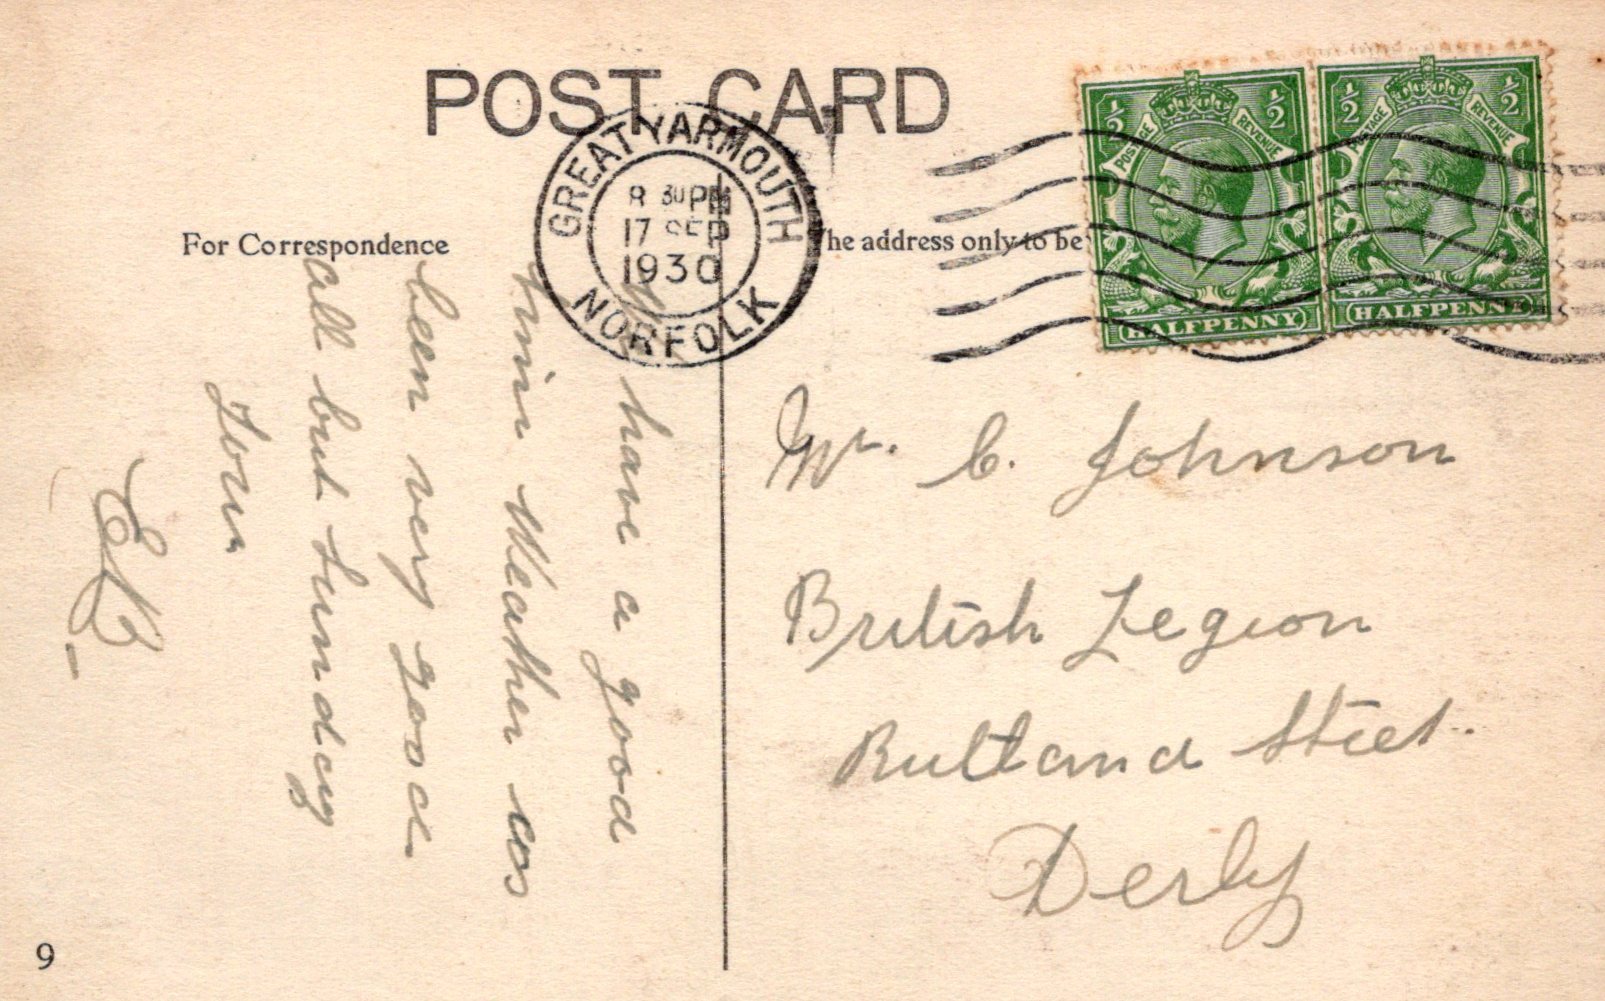 POST CARD
GREAT YARMOUTH
8 30 PM
17 SEP
1930
NORFOLK
For Correspondence
The address only to be
1/2 1/2
POSTAGE REVENUE
HALFPENNY
1/2 1/2
POSTAGE REVENUE
HALFPENNY
have a good
Time Weather as
been very good
all but Sunday
Tom
Mr. C. Johnson
British Legion
Rutland Street.
Derby
9